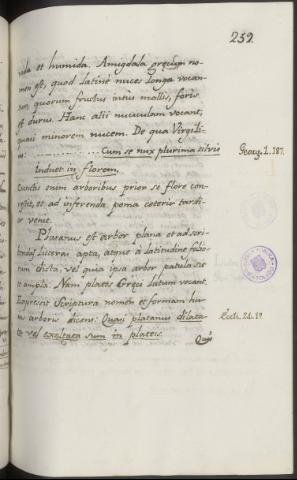 259.
rida et humida. Amigdala grecum no-
men est, quod latinè nuces longa vocan-
tur, quorum fructus intus mollis, foris
est durus. Hanc alii nuculam vocant,
quasi minorem nucem. De qua Virgili-
us: Cum se nux plurima silvis Georg. 1. 187.
Induet in florem.
Cunctis enim arboribus prior se flore con-
vestit, et ad inferenda poma ceteris tardi-
or venit.
Platanus est arbor plana et
apta, atens à latitudine folio-
rum dicta, vel qua ipsa arbor patula sit
et ampla. Nam plates Greci latum vocant.
Expressit Scriptura nomen et formam hu-
ius arboris dicens: Quasi platanus dilata-
ta vel exaltata sum in plateis. Eccli. 24. 19.
Qui